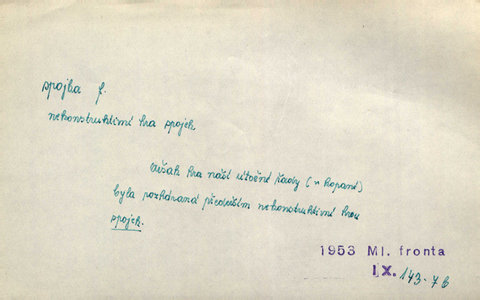 spojka f.
nekonstruktivní hra spojek
Avšak hra naší útočné řady (v kopané)
byla pozkávaná především nekonstruktivní hrou
spojek.
1953 Ml. fronta
IX. 143-7b